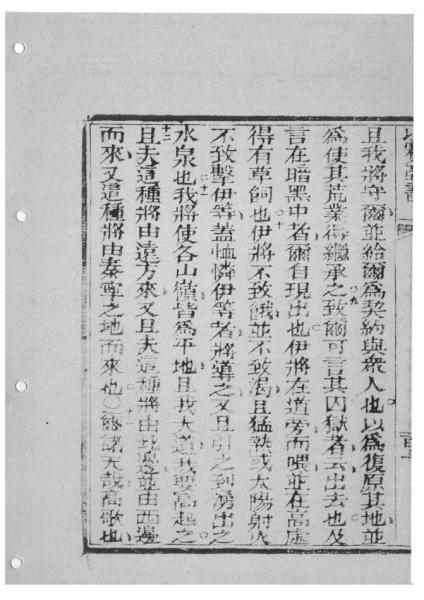 以賽亞書
且我將守爾並給爾爲契約與衆人也以爲復原其地並
爲使其荒業得繼承之致爾可言其囚獄者云出去也及
言在暗黑中者爾自現出也伊將在道旁而喂並在高處
得有草飼也伊將不致餓並不致渴且猛熱或太陽射火
不致擊伊等蓋恤憐伊等者將導之又且引之到湧出之
水泉也我將使各山嶺皆爲平地且我大道我要高起之
且夫這種將由遠方來又且夫這種將由北邊並由西邊
而來又這種將由秦寧之地而來也○諸天哉高歌也